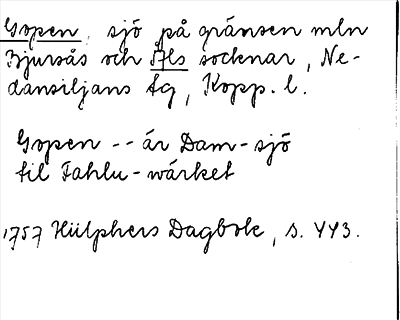 Gopen, sjö på gränsen mln
Bjursås och Åls socknar, Ne-
dansiljans tg, Kopp. l.
Gopen -- är Dam-sjö
til Fahlu-wärket
1757 Hülphers Dagbok, s. 443.